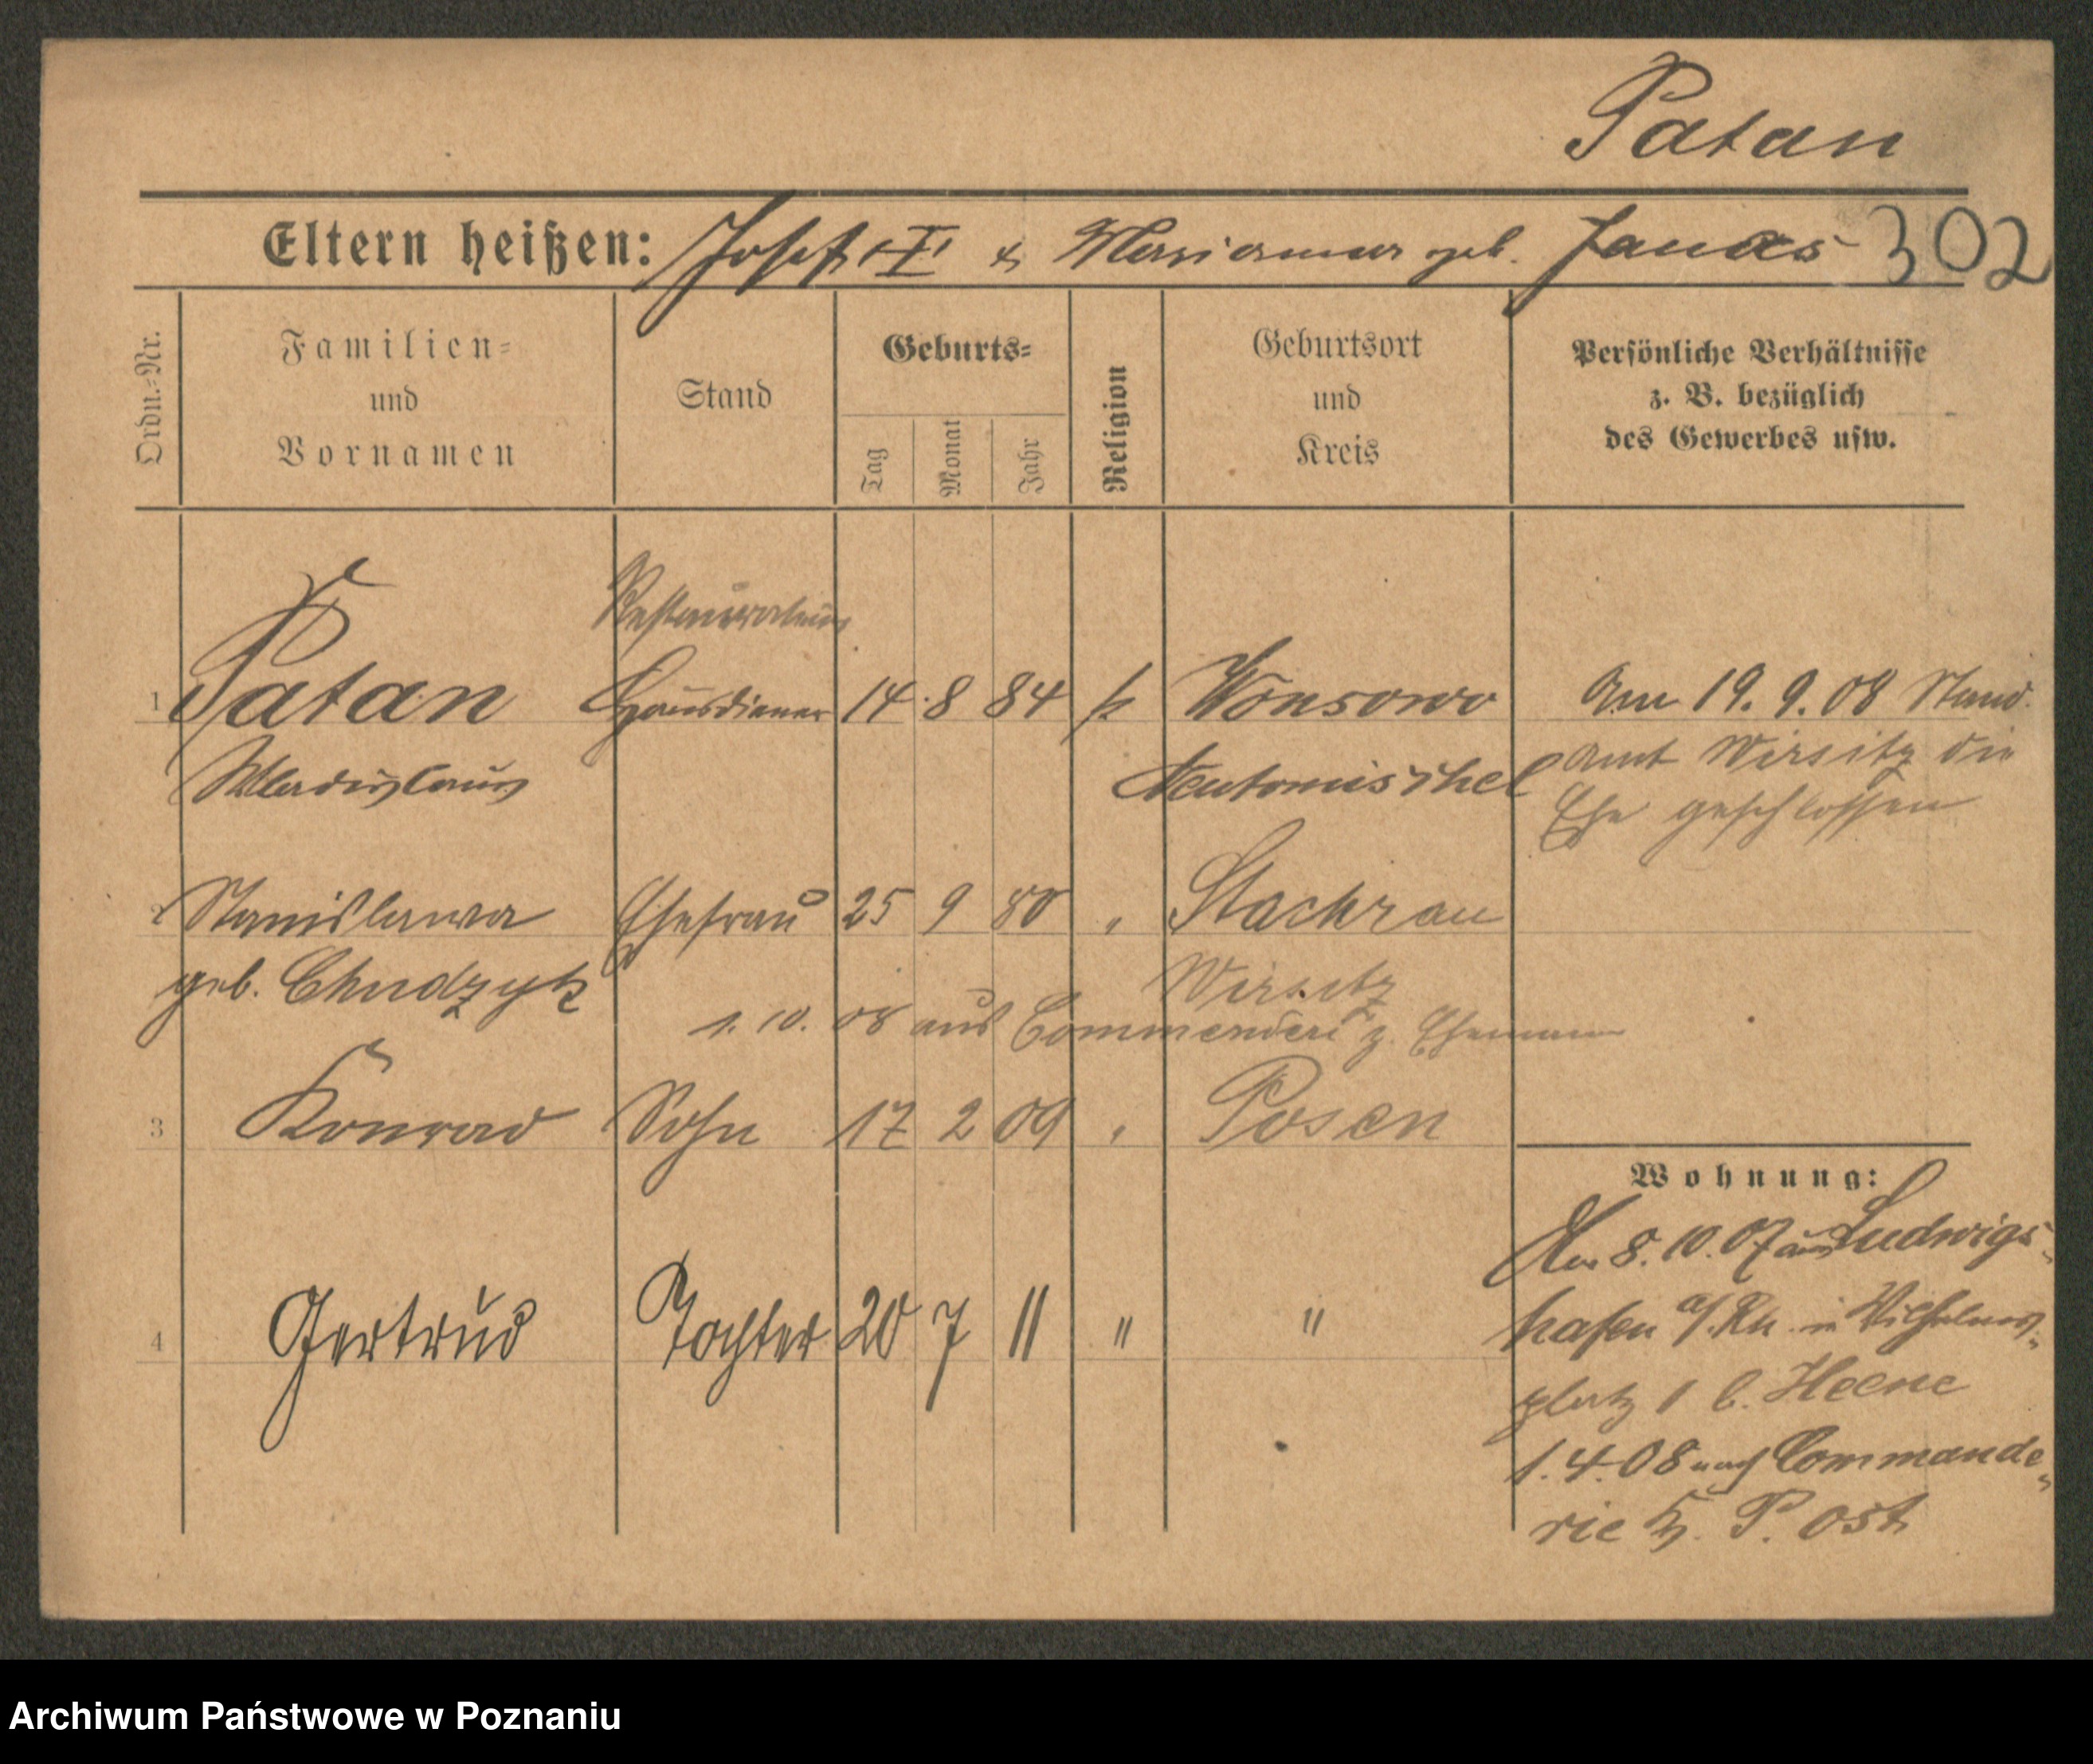 Patan
Eltern heißen: Josef & Marianna geb. Janas 302
Ordn.-Nr.
Familien-
und
Vornamen
Stand
Geburts-
Tag
Monat
Jahr
Religion
Geburtsort
und
Kreis
Persönliche Verhältnisse
z. B. bezüglich
des Gewerbes usw.
1 Patan Hausdiener 14 8 84 k Wonsowo
Wladislaus Neutomischel
Am 19. 9. 08 Stand.
Amt Wirsitz die
Ehe geschlossen
2 Stanislawa Ehefrau 25 9 80 "
geb. Chudzyk Wirsitz
1. 10. 08 aus Commenderi z. Ehemann
3 Konrad Sohn 17 2 09 " Posen
4 Gertrud Tochter 20 7 11 " "
Wohnung:
8. 10. 07 aus Ludwigs-
hafen a/Rh. in Wilhelms-
platz 1 b. Heene
1. 4. 08 nach Commande-
rie P. Ost
Archiwum Państwowe w Poznaniu